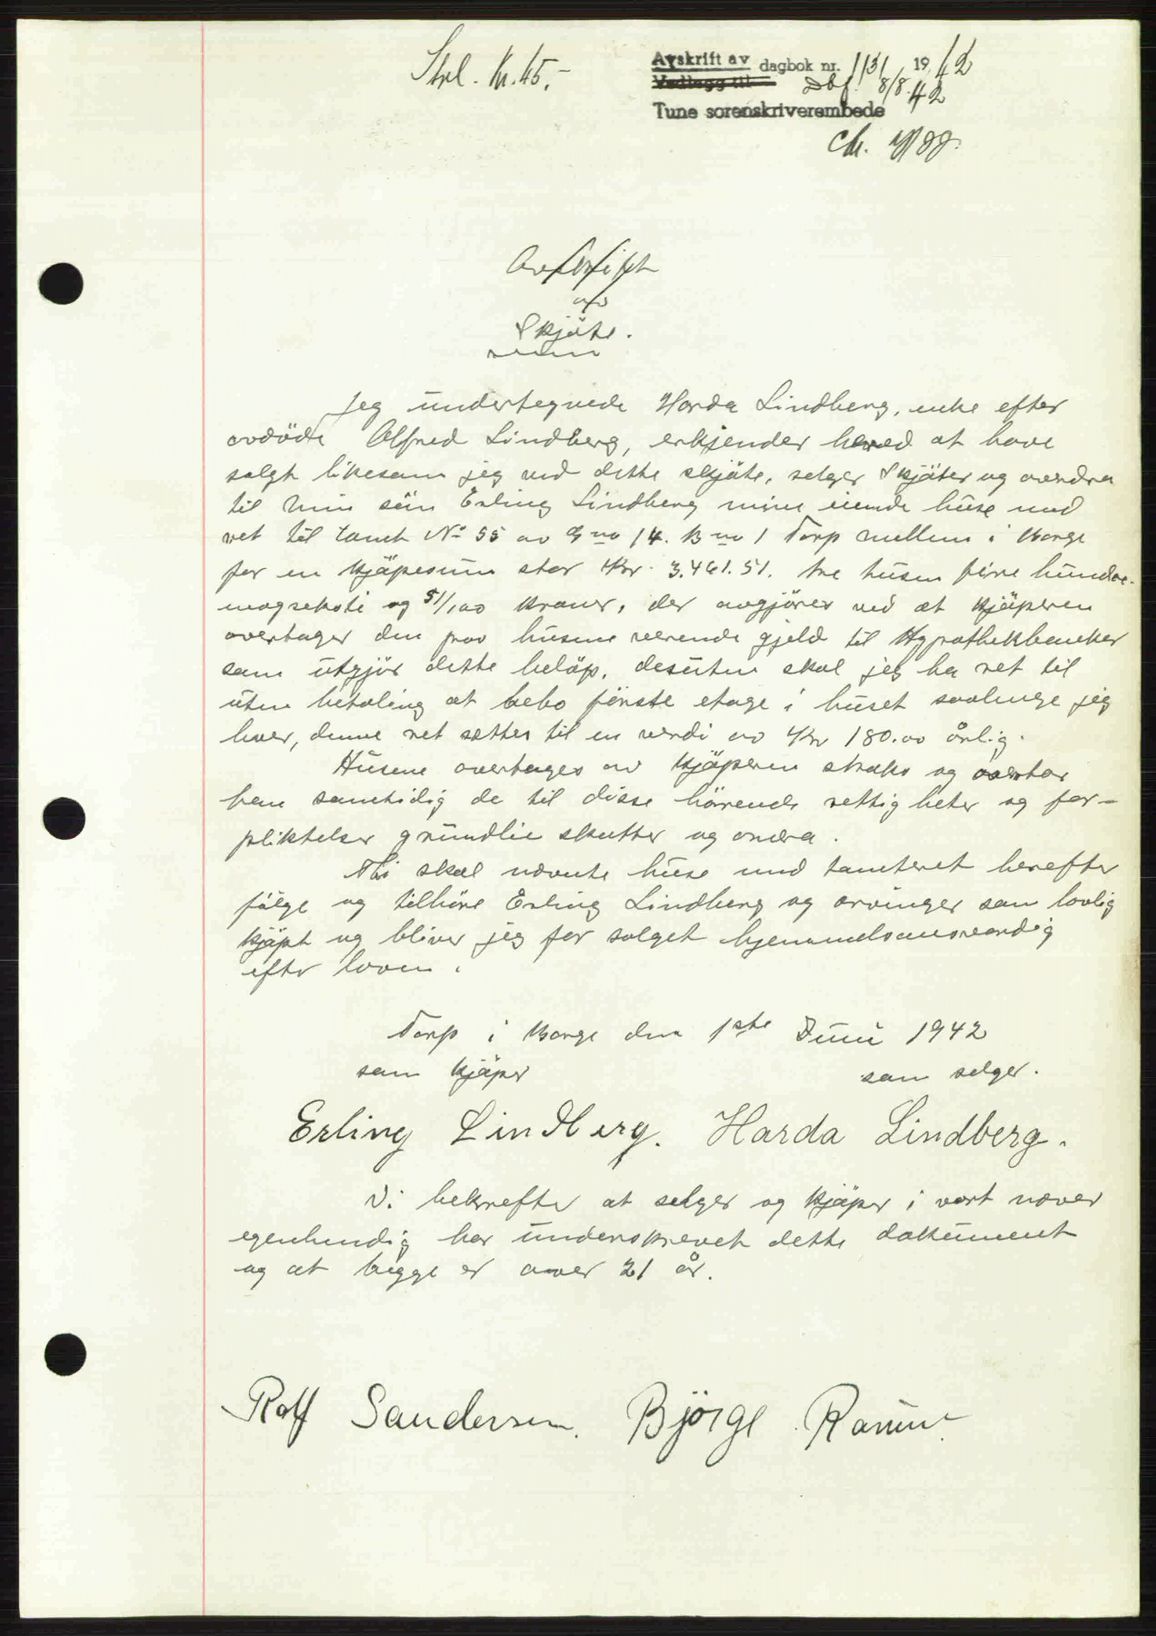 Stpl. Kr. 45,-
Avskrift av dagbok nr. 1131 1942
Vedlegg til Dbf. 8/8 42
Tune sorenskriverembede
Avskrift
av
Skjöte.
Jeg undertegnede Harda Lindberg, enke efter
avdöde Alfred Lindberg, erkjender herved at have
solgt likesom jeg ved dette skjöte, selger skjöter og overdra
til min sön Erling Lindberg mine eiende huse med
ret til tomt No 55 av Gno 14. Bno 1 Torp mellem i Borge
for en kjöpesum stor Kr. 3.461.51. tre tusen fire hundre-
ogseksti og 51/100 kroner, der avgjöres ved at kjöperen
overtager den paa husene værende gjeld til Hypothekbanken
som utgjör dette belöp, desuten skal jeg ha ret til
uten betaling at bebo förste etage i huset saalenge jeg
lever, denne ret settes til en verdi av Kr 180.00 årlig.
Husene overtages av kjöperen straks og overtar
han samtidig de til disse hörende rettigheter og for-
pliktelser grundleie skatter og andra.
Thi skal nevnte huse med tomteret herefter
fölge og tilhöre Erling Lindberg og arvinger som lovlig
kjöpt og bliver jeg for salget hjemmelsansvarlig
efter loven.
Torp i Borge den 1ste Juni 1942
som kjöper som selger.
Erling Lindberg. Harda Lindberg.
Vi bekrefter at selger og kjöper i vort nærvær
egenhendig har underskrevet dette dokument
og at begge er over 21 år.
Rolf Sandersen. Björge